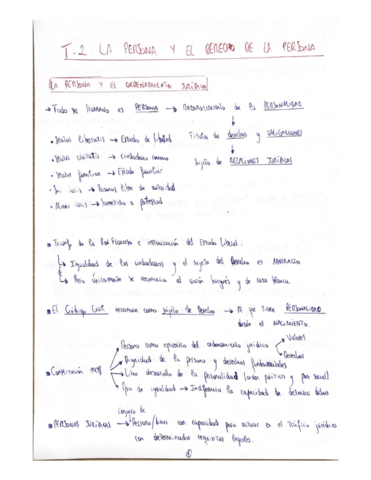 T-2. LA PERSONA Y EL DERECHO DE LA PERSONA
LA PERSONA Y EL ORDENAMIENTO JURÍDICO
→ Todo ser humano es PERSONA → reconocimiento de la PERSONALIDAD
• Status libertatis → Estado de libertad
Titular de derechos y OBLIGACIONES
• Status civitatis → ciudadano romano
• Status familiae → Estado familiar
Sujeto de RELACIONES JURÍDICAS
• Sui iuris → Persona libre de autoridad
• Alieni iuris → Sometido a potestad
• Triunfo de la Rev Francesa e instauración del Estado Liberal:
↳ Igualdad de los ciudadanos y el sujeto del Derecho es ABSTRACTO
↳ Pero únicamente se reconocía al varón burgués y de raza blanca.
• El Código Civil reconoce como sujeto de Derecho → Al que tiene PERSONALIDAD
desde el NACIMIENTO.
• Constitución 1978
→ Persona como epicentro del ordenamiento jurídico
→ Valores
→ Derechos
→ Dignidad de la persona y derechos fundamentales
→ Libre desarrollo de la personalidad (orden político y paz social)
→ Ppo de igualdad →
la capacidad de
• PERSONAS JURÍDICAS → conjunto de Personas/bienes con capacidad para actuar en el tráfico jurídico
con determinados requisitos legales.
①